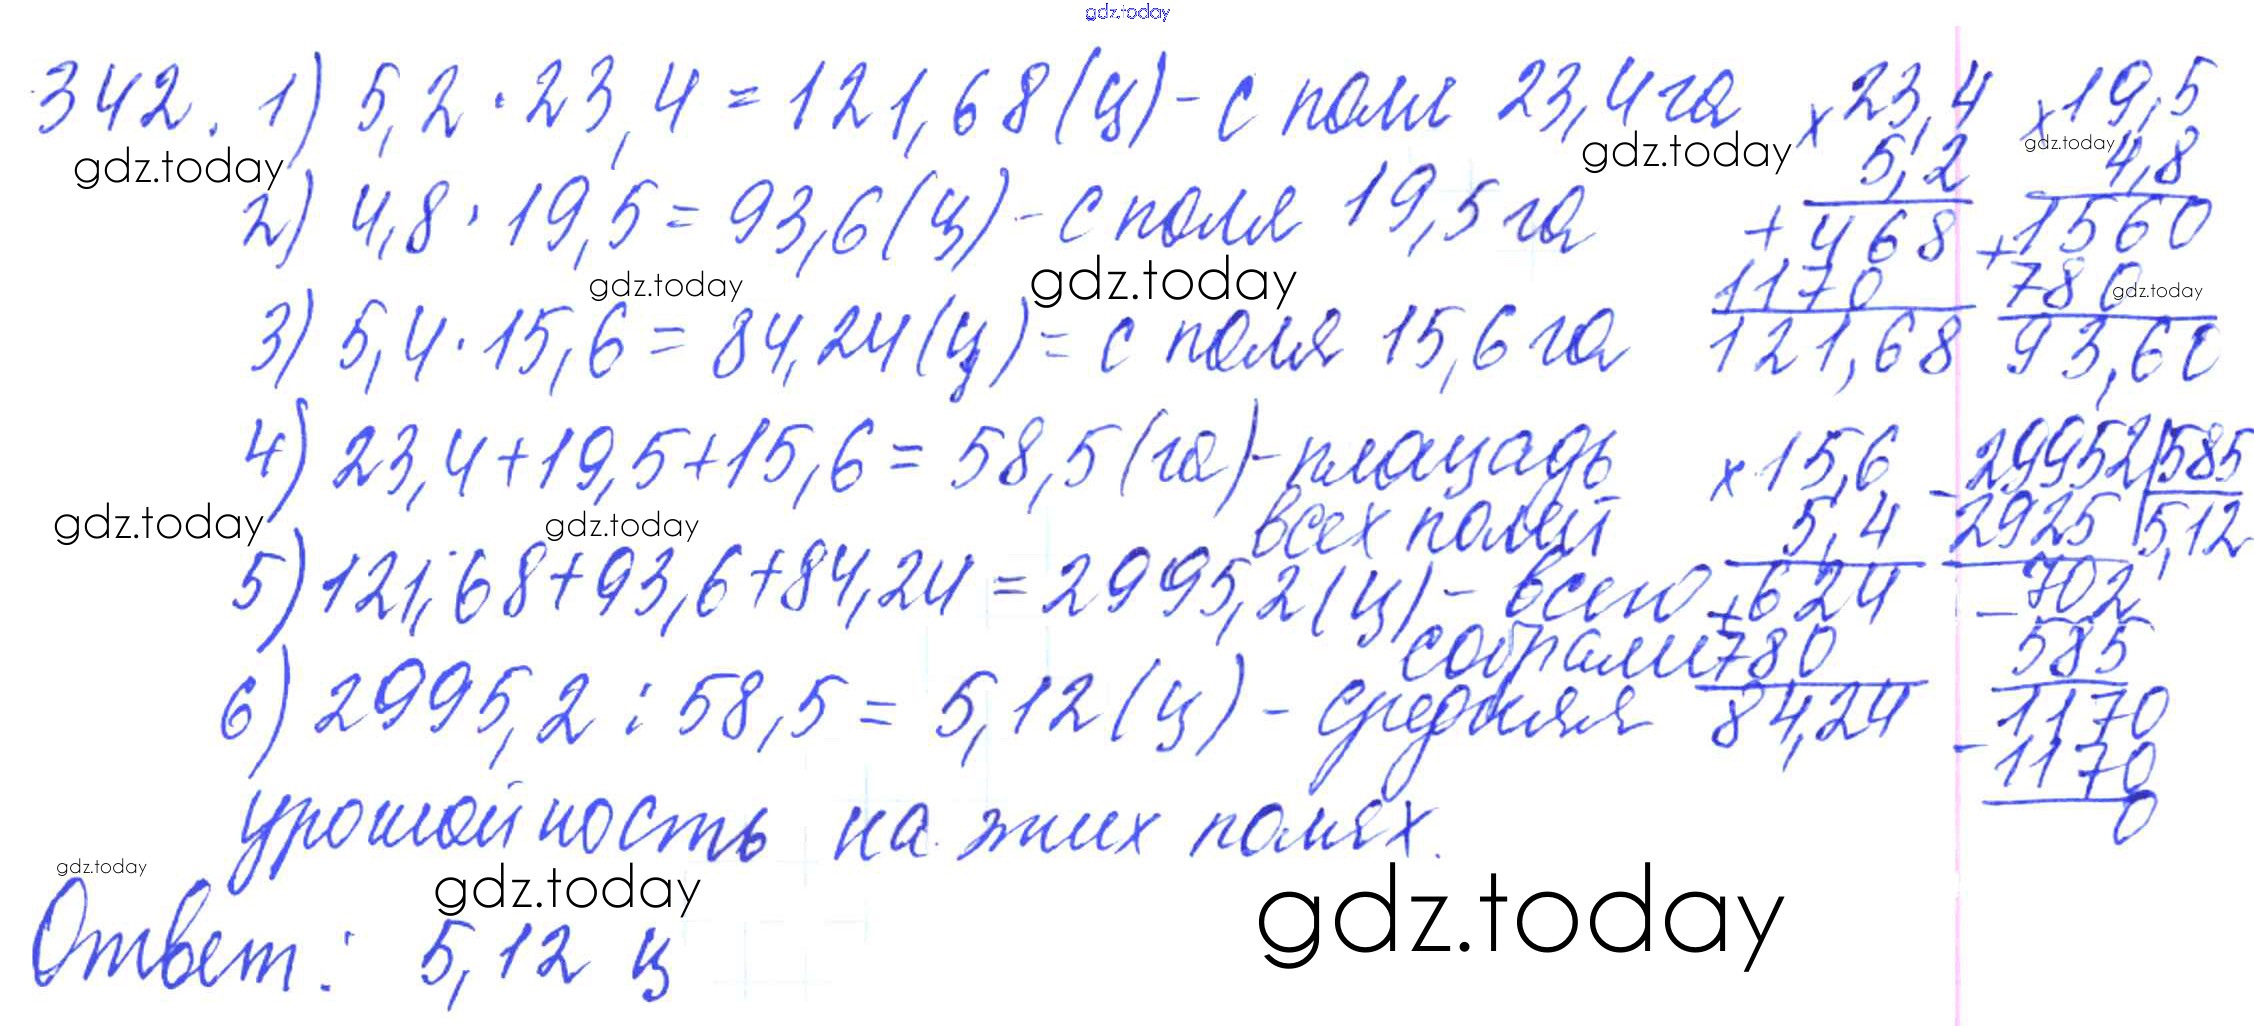 gdz.today
342. 1) 5,2 · 23,4 = 121,68 (ц) - с поля 23,4 га
gdz.today gdz.today gdz.today
2) 4,8 · 19,5 = 93,6 (ц) - с поля 19,5 га
gdz.today gdz.today gdz.today
3) 5,4 · 15,6 = 84,24 (ц) = с поля 15,6 га
4) 23,4 + 19,5 + 15,6 = 58,5 (га) - площадь
всех полей
gdz.today gdz.today
5) 121,68 + 93,6 + 84,24 = 2995,2 (ц) - всего
собрали
6) 2995,2 : 58,5 = 5,12 (ц) - средняя
урожайность на этих полях.
gdz.today gdz.today gdz.today
Ответ: 5,12 ц
× 23,4
5,2
+ 468
1170
121,68
× 19,5
4,8
+ 1560
780
93,60
× 15,6
5,4
+ 624
780
84,24
- 29952 | 585
2925 | 5,12
- 702
585
1170
- 1170
0